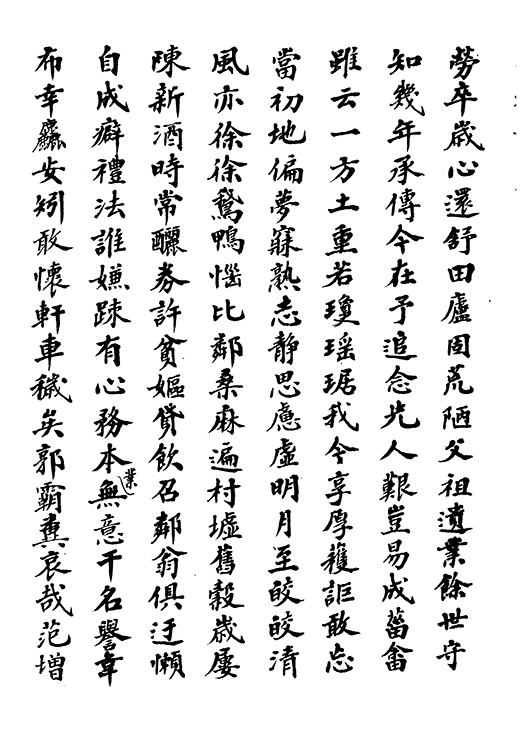 勞卒歲心還舒田廬固荒陋父祖遺業餘世守
知幾年承傳今在予追念先人艱豈易成菑畬
雖云一方土重若瓊瑤琚我今享厚穫詎敢忘
當初地偏夢寐熟志靜思慮虛明月至皎皎清
風亦徐徐鵞鴨惱比鄰桑麻遍村墟舊穀歲屢
陳新酒時常釃券許貧嫗貸飲召鄰翁俱迂懶
自成癖禮法誰嫌踈有心務本業無意干名譽韋
布幸麤安矧敢懷軒車穢矣郭霸糞哀哉范增